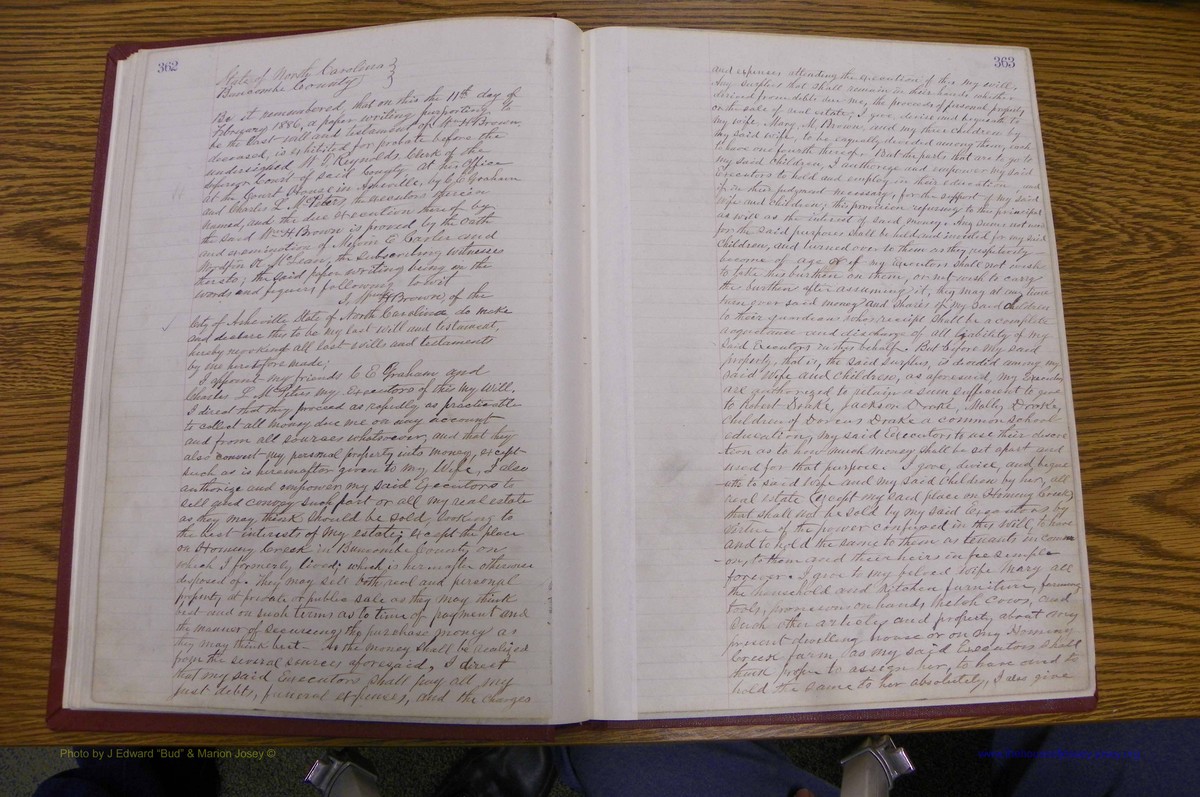 362
State of North Carolina }
Buncombe County }
Be it remembered, that on this the 11th day of
February 1886, a paper writing purporting to
be the last will and testament of Wm H Brown,
deceased, is exhibited for probate before the
undersigned W T Reynolds Clerk of the
Superior Court of said County at his Office
at the Court House in Asheville, by C E Graham
and Charles L McPeters, the executors therein
named, and the due execution thereof by
the said Wm H Brown is proved by the oath
and examination of Melvin E Carter and
R McLean, the subscribing witnesses
thereto; the said paper writing being in the
words and figures following to wit
I, Wm H Brown, of the
City of Asheville State of North Carolina do make
and declare this to be my last will and testament,
hereby revoking all last wills and testaments
by me heretofore made;
I appoint my friends C E Graham and
Charles L McPeters my Executors of this my Will.
I direct that they proceed as rapidly as practicable
to collect all money due me on any account
and from all sourses whatsoever, and that they
also convert my personal property into money, except
such as is hereinafter given to my Wife, I also
authorize and empower my said Executors to
sell and convey such part or all my real estate
as they may think should be sold, looking to
the best interests of my estate; except the place
on Hominy Creek in Buncombe County on
which I formerly lived; which is hereinafter otherwise
disposed of. They may sell both real and personal
property at private or public sale as they may think
best and on such terms as to time of payment and
the manner of securing the purchase money as
they may think best. As the money shall be realized
from the several sources aforesaid, I direct
that my said Executors shall pay all my
just debts, funeral expenses, and the charges
363
and expenses attending the execution of this my will.
Any surplus that shall remain in their hands, whether
derived from debts due me, the proceeds of personal property
or the sale of real estate; I give, devise and bequeath to
my wife, Mary M. Brown, and my three children by
my said wife, to be equally divided among them, each
to have one fourth thereof. But the parts that are to go to
my said children, I authorize and empower my said
Executors to hold and employ in their education, and
if in their judgment necessary, for the support of my said
wife and children; this provision refering to the principal
as well as the interest of said money. Any sums not used
for the said purposes shall be held and invested for my said
Children, and turned over to them as they respectively
become of age or if my Executors shall not wish
to take this burthen on them, or not wish to carry
the burthen after assuming it, they may at any time
turn over said money and Shares of my said children
to their guardian whose receipt shall be a complete
acquittance and discharge of all liability of my
said Executors in this behalf. But before my said
property, that is, the said surplus, is divided among my
said Wife and children, as aforesaid, my Executors
are authorized to retain a sum sufficient to give
to Robert Drake, Jackson Drake, Molly Drake,
Children of Dorcus Drake a common School
education, my said executors to use their discre
tion as to how much money shall be set apart and
used for that purpose. I give, devise, and beque
ath to said Wife and my said Children by her, all
real estate (except my said place on Hominy Creek)
that shall not be sold by my said Executors by
virtue of the power conferred in this will, to have
and to hold the same to them as tenants in comm
on, to them and their heirs in fee simple
forever. I give to my beloved Wife Mary all
the household and Kitchen furniture, farming
tools, provisions on hand, Melch Cows, and
such other articles and property about my
present dwelling house or on my Hominy
Creek farm, as my said Executors shall
think proper to assign her, to have and to
hold the same to her absolutely, I also give
Photo by J Edward "Bud" & Marion Josey ©